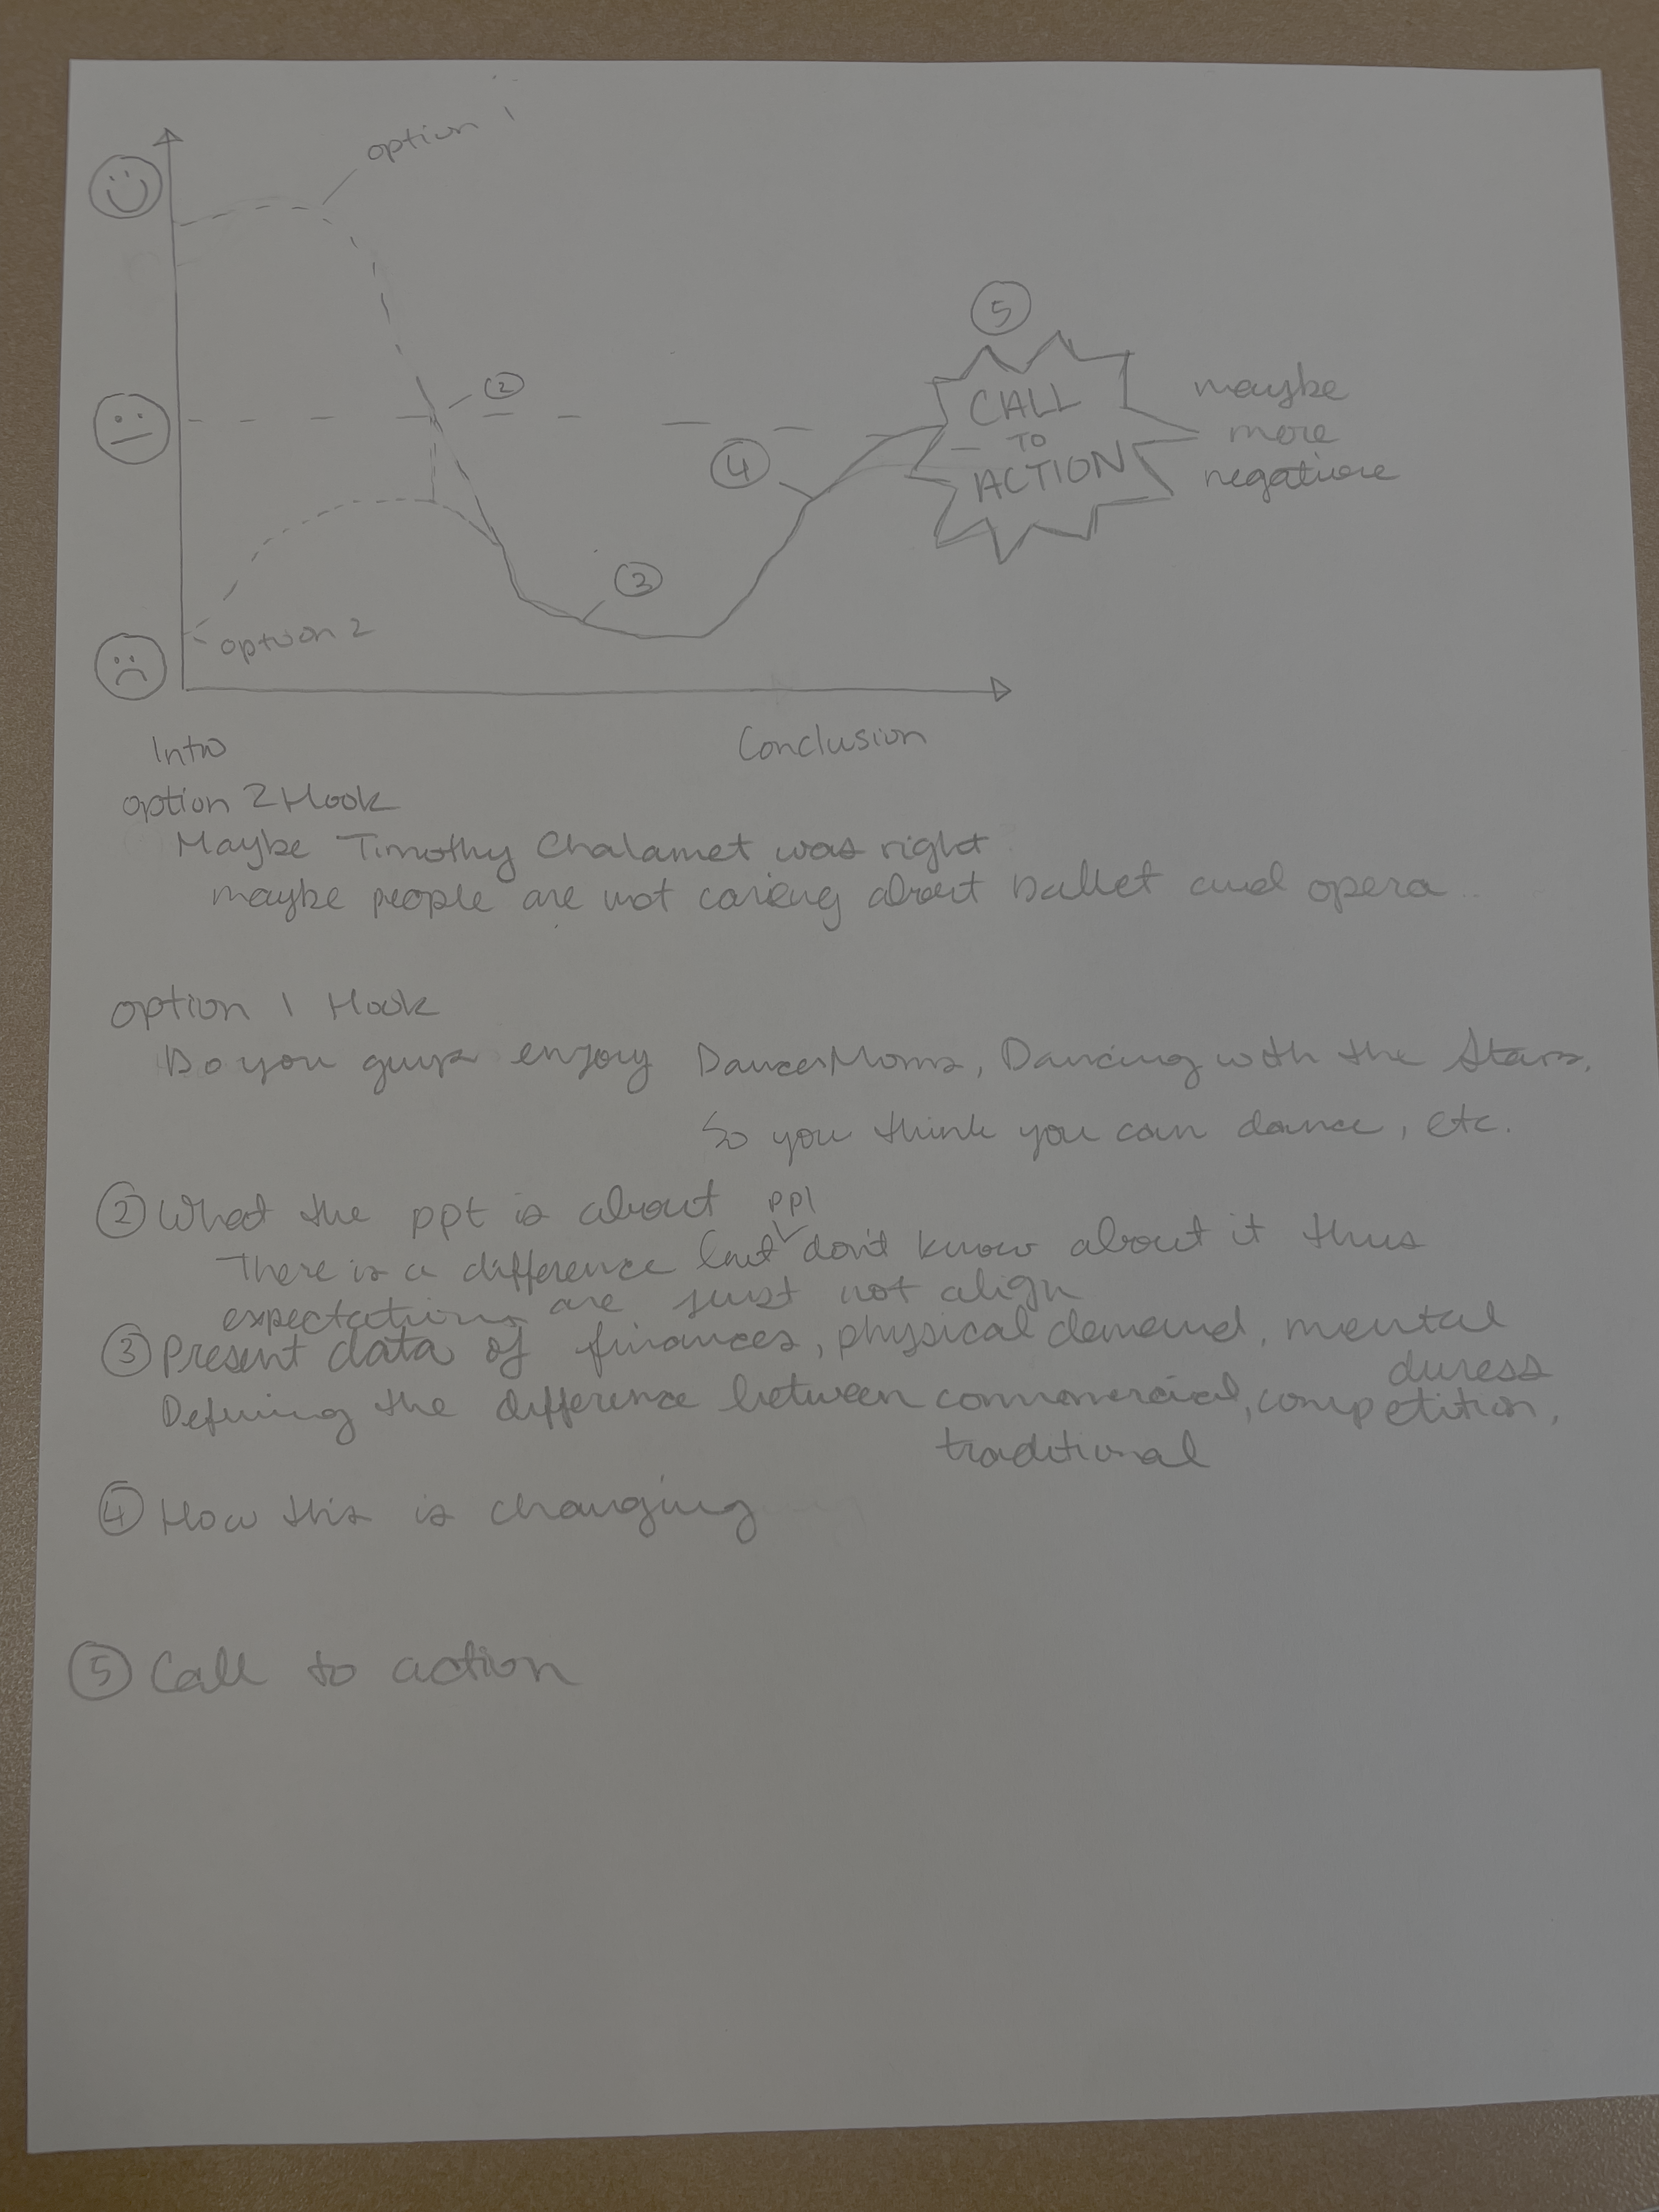 option 1
5
2
CALL
TO
ACTION
maybe
more
negative
4
3
option 2
Intro
Conclusion
option 2 Hook
Maybe Timothy Chalamet was right
maybe people are not caring about ballet and opera ..
option 1 Hook
Do you guys enjoy Dance Moms, Dancing with the Stars,
So you think you can dance, etc.
② What the ppt is about
There is a difference but ppl don't know about it thus
expectations are just not align
③ Present data of finances, physical demand, mental
duress
Defining the difference between commercial, competition,
traditional
④ How this is changing
⑤ Call to action